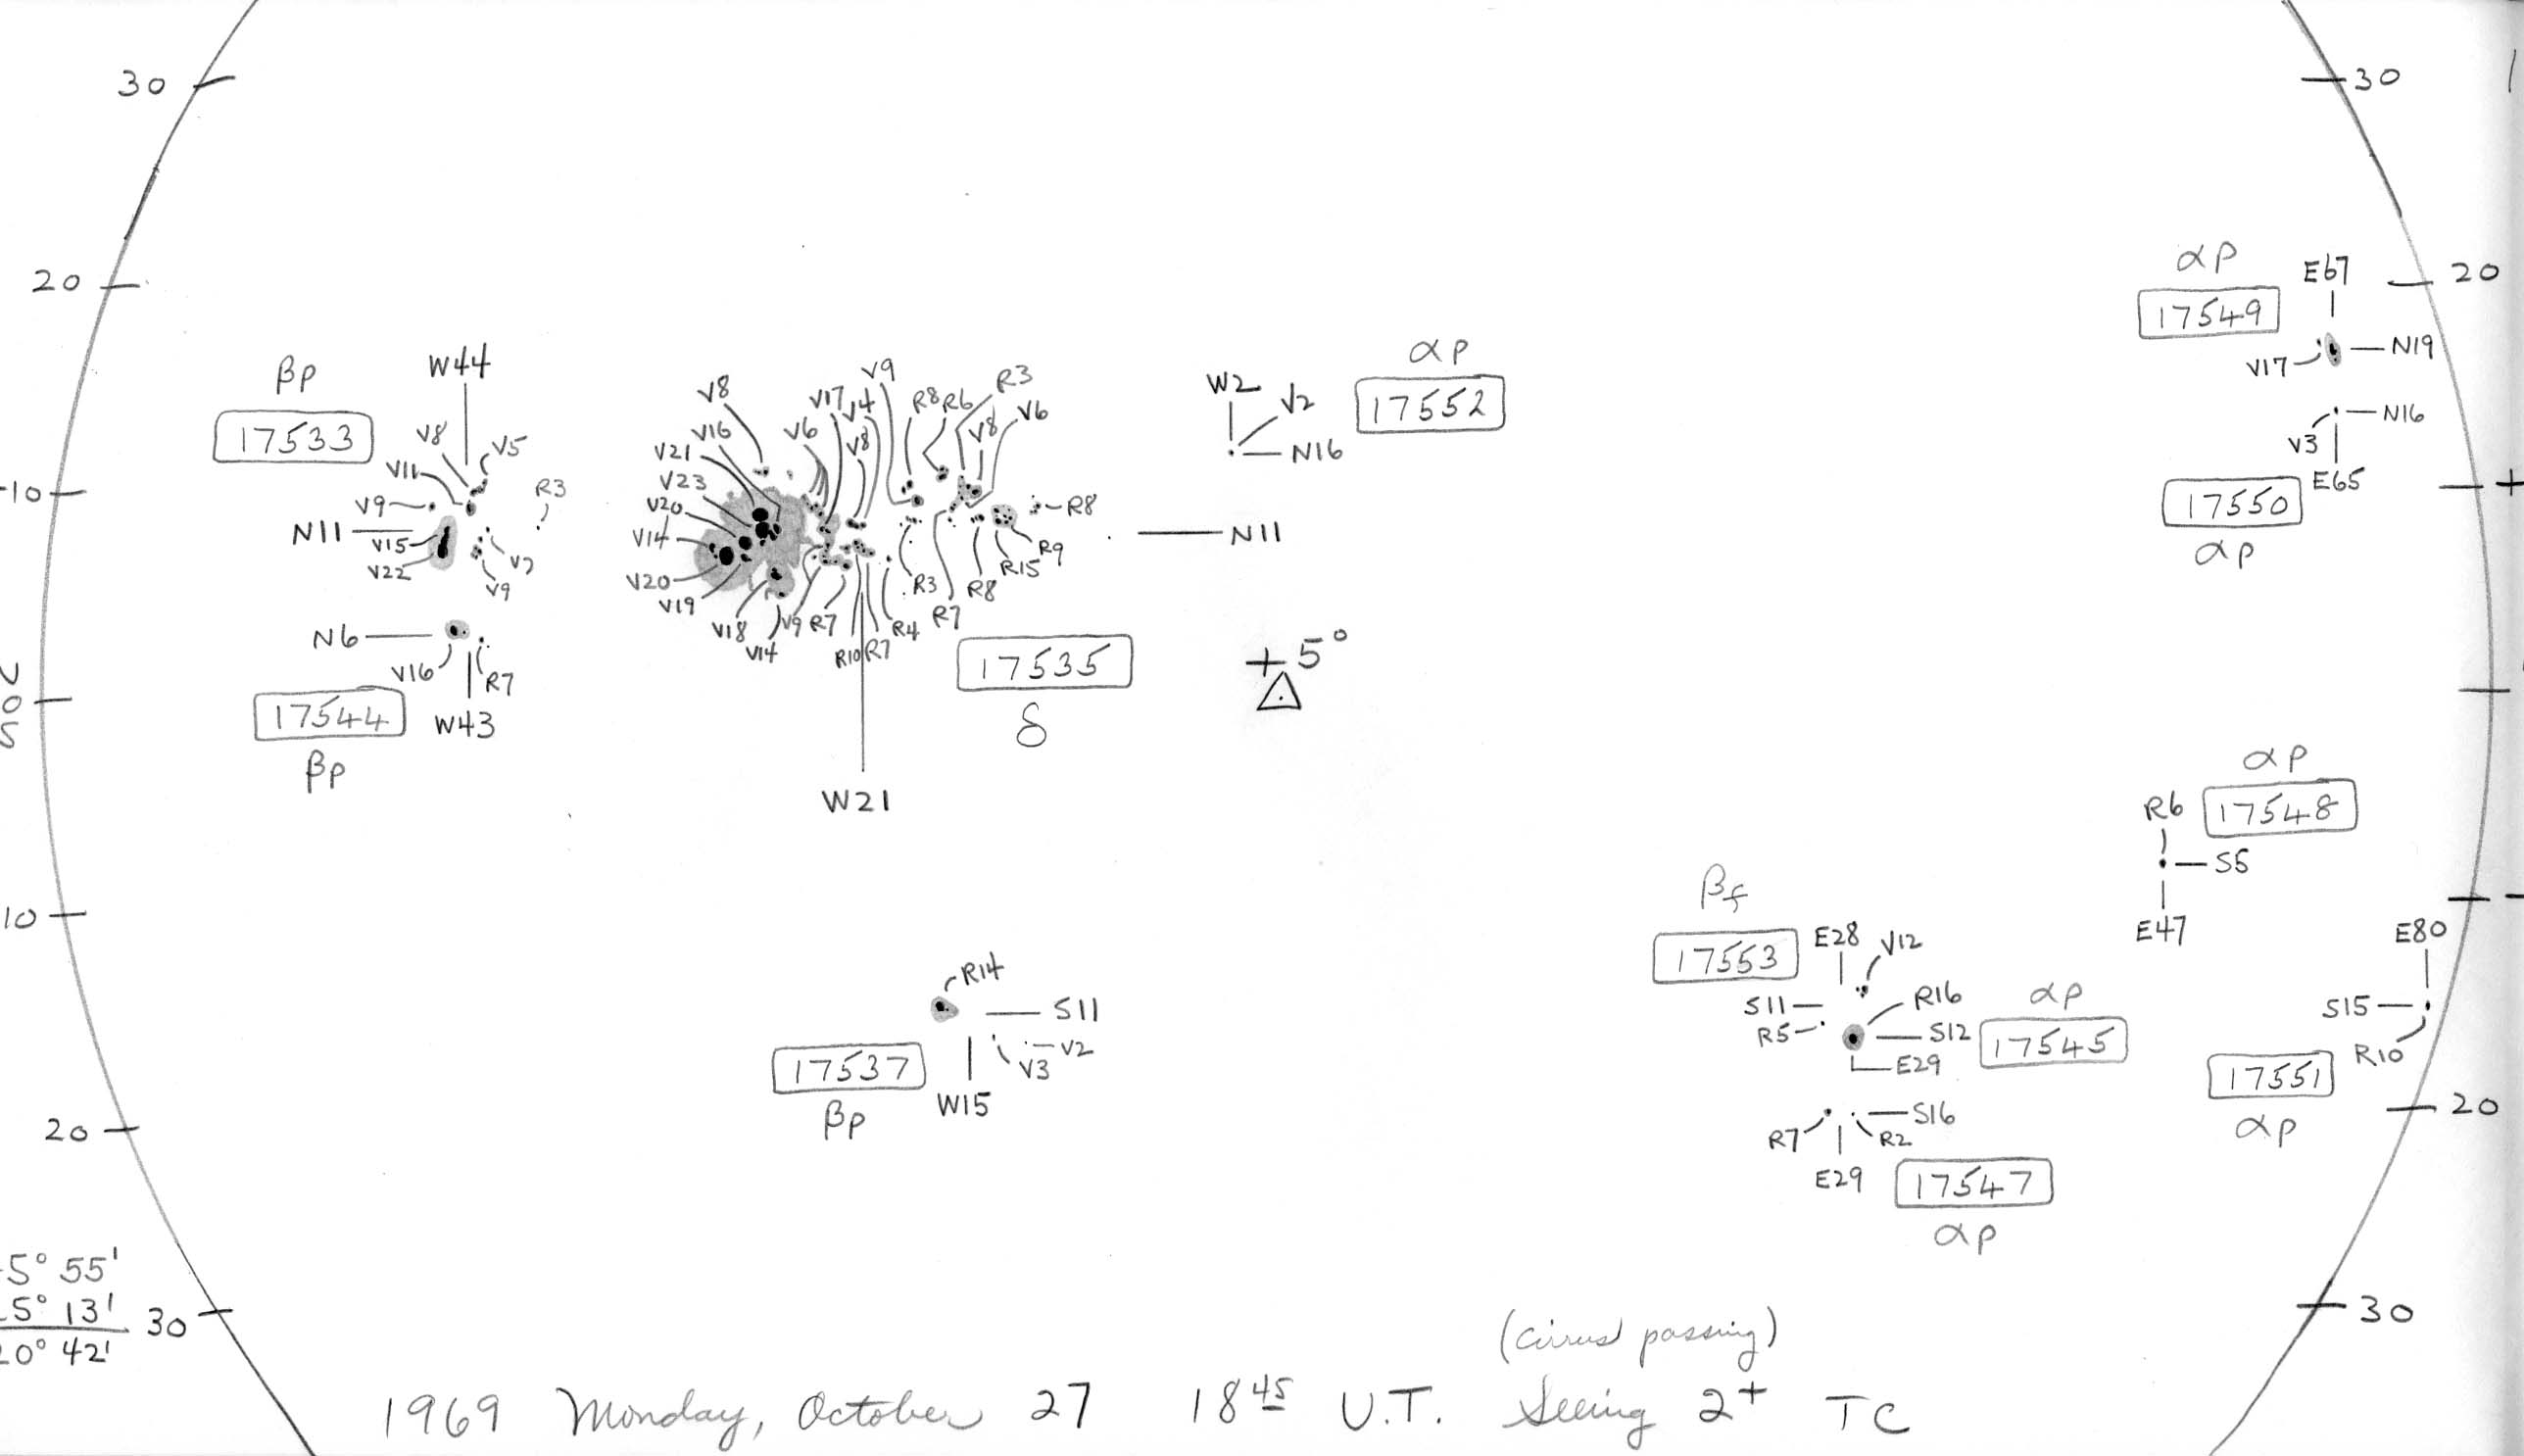 30
30
20
20
αp
E67
17549
V17
N19
N16
V3
E65
17550
αp
βp
17533
W44
V8
V5
V11
V9
R3
N11
V15
V22
V7
V9
N6
V16
R7
17544
W43
βp
V8
V16
V21
V23
V20
V14
V20
V19
V18
V14
V6
V17
V4
V8
V9
R8
R6
R3
V8
V6
R8
R9
R15
R8
R7
R3
R4
R7
R10
R7
V9
N11
17535
δ
W21
αp
W2
V2
17552
N16
10
+
+5°
0
S
αp
R6
17548
S5
E47
10
βf
17553
E28
V12
S11
R5
R16
αp
S12
17545
E29
R7
S16
R2
E29
17547
αp
E80
S15
R10
17551
αp
R14
S11
V2
V3
17537
W15
βp
20
20
5° 55'
5° 13'
0° 42'
30
30
(cirrus passing)
1969 Monday, October 27 18 45 U.T. Seeing 2+ TC